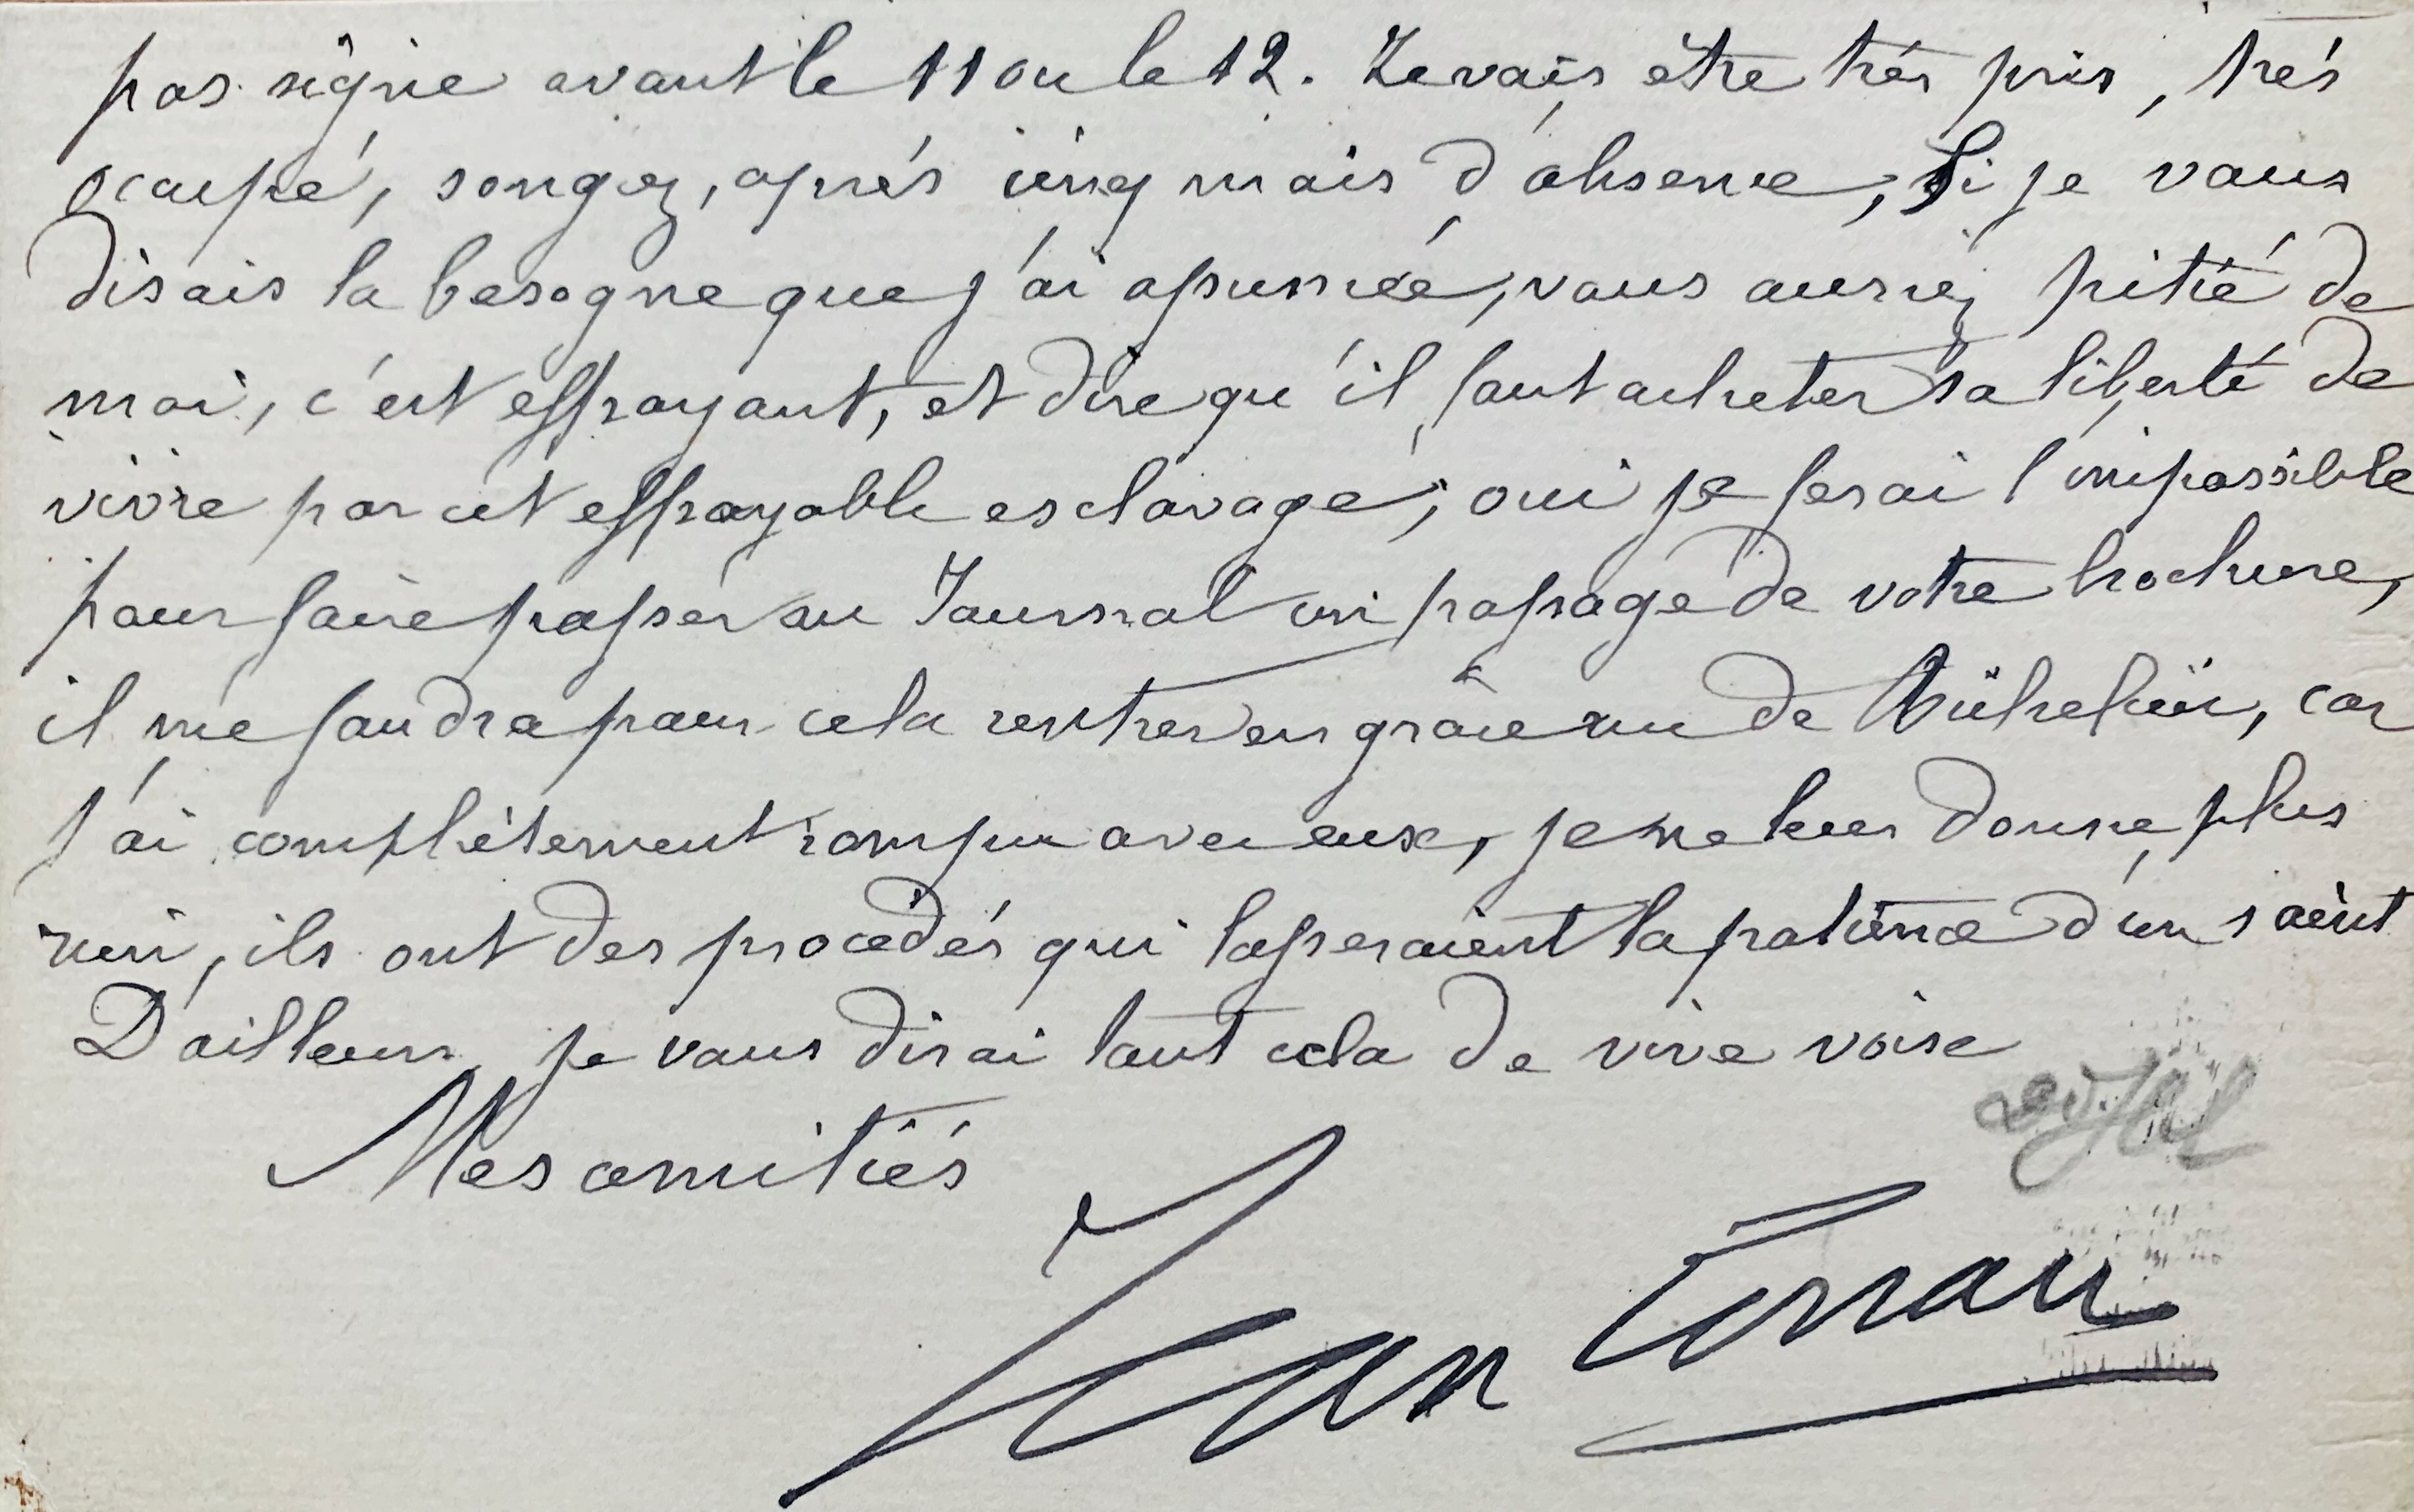 pas signe avant le 11 ou le 12. Je vais être très pris, très
ocupé, songez, après cinq mois d'absence, Si je vous
disais la besogne que j'ai assumée, vous auriez pitié de
moi, c'est effrayant, et dire qu'il faut acheter sa liberté de
vivre par cet effroyable esclavage; oui je ferai l'impossible
pour faire passer au Journal un passage de votre brochure,
il me faudra pour cela rentrer en grâce de car
j'ai complètement rompu avec eux, je ne leur donne plus
rien, ils ont des procédés qui lasseraient la patience d'un saint
D'ailleurs je vous dirai tout cela de vive voix
Mes amitiés
Jean Lorrain